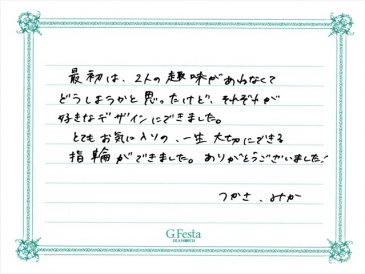 最初は、2人の趣味があわなくて
どうしようかと思ったけど、それぞれが
好きなデザインにできました。
とてもお気に入りの、一生大切にできる
指輪ができました。ありがとうございました!
つかさ、みか
G.Festa
DIAMOND